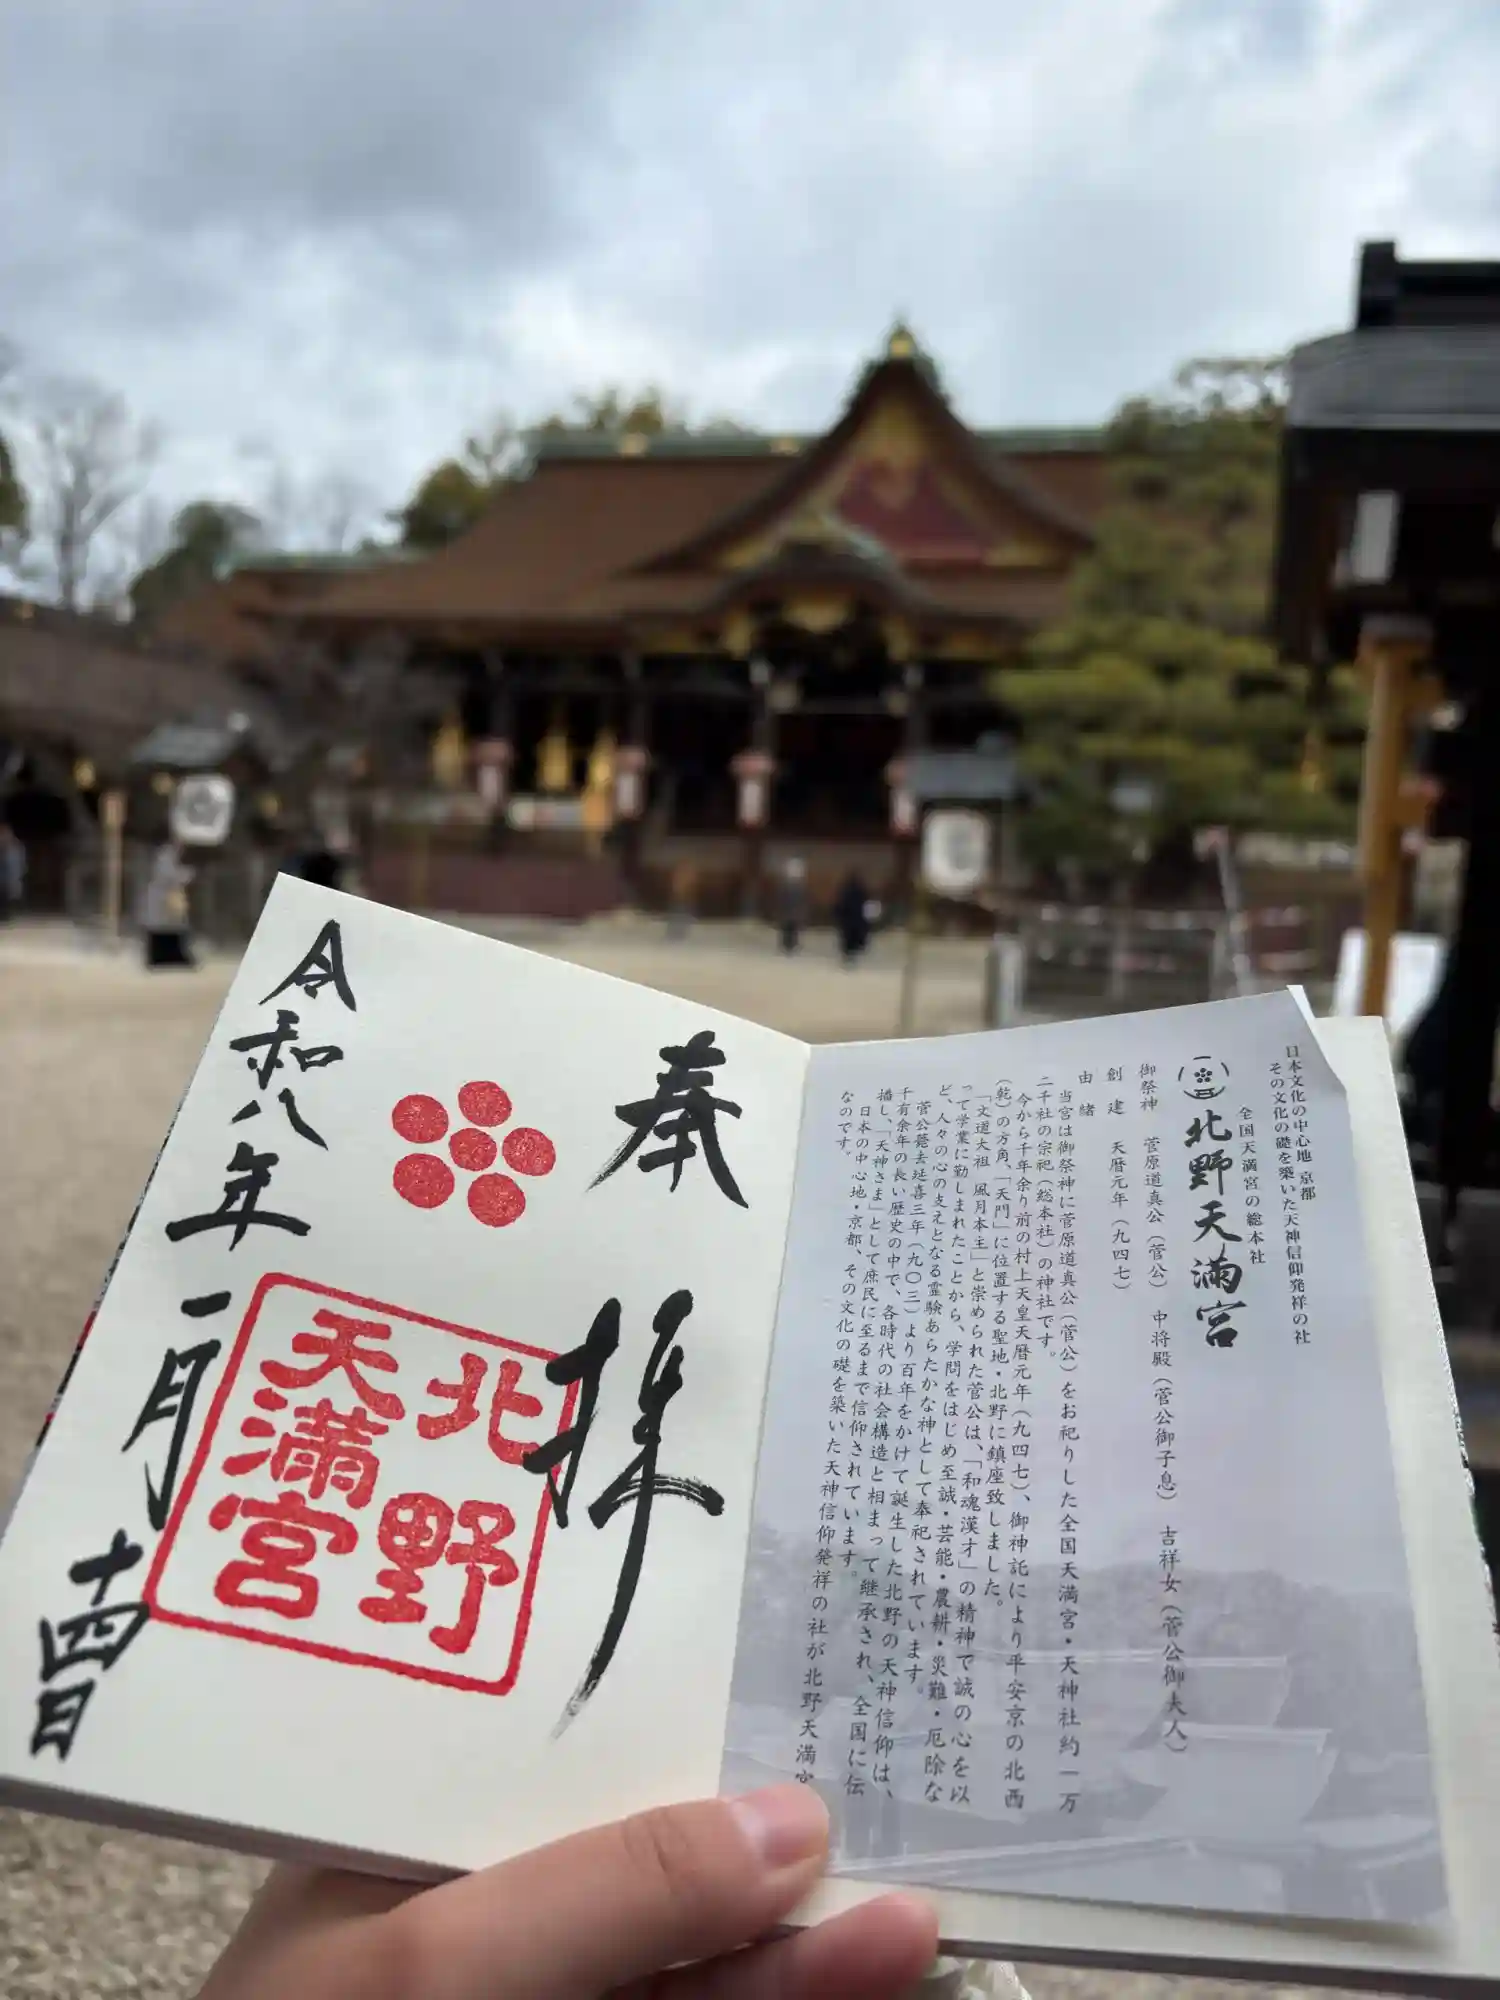 奉拝
北野
天満宮
令和八年一月十四日
日本文化の中心地 京都
その文化の礎を築いた天神信仰発祥の社
全国天満宮の総本社
北野天満宮
御祭神 菅原道真公（菅公） 中将殿（菅公御子息） 吉祥女（菅公御夫人）
創建 天暦元年（九四七）
由緒
当宮は御祭神に菅原道真公（菅公）をお祀りした全国天満宮・天神社約一万
二千社の宗祀（総本社）の神社です。
今から千年余り前の村上天皇天暦元年（九四七）、御神託により平安京の北西
（乾）の方角、「天門」に位置する聖地・北野に鎮座致しました。
「文道大祖 風月本主」と崇められた菅公は、「和魂漢才」の精神で誠の心を以
って学業に勤しまれたことから、学問をはじめ至誠・芸能・農耕・災難・厄除な
ど、人々の心の支えとなる霊験あらたかな神として奉祀されています。
菅公薨去延喜三年（九〇三）より百年をかけて誕生した北野の天神信仰は、
千有余年の長い歴史の中で、各時代の社会構造と相まって継承され、全国に伝
播し、「天神さま」として庶民に至るまで信仰されています。
日本の中心地・京都、その文化の礎を築いた天神信仰発祥の社が北野天満宮
なのです。